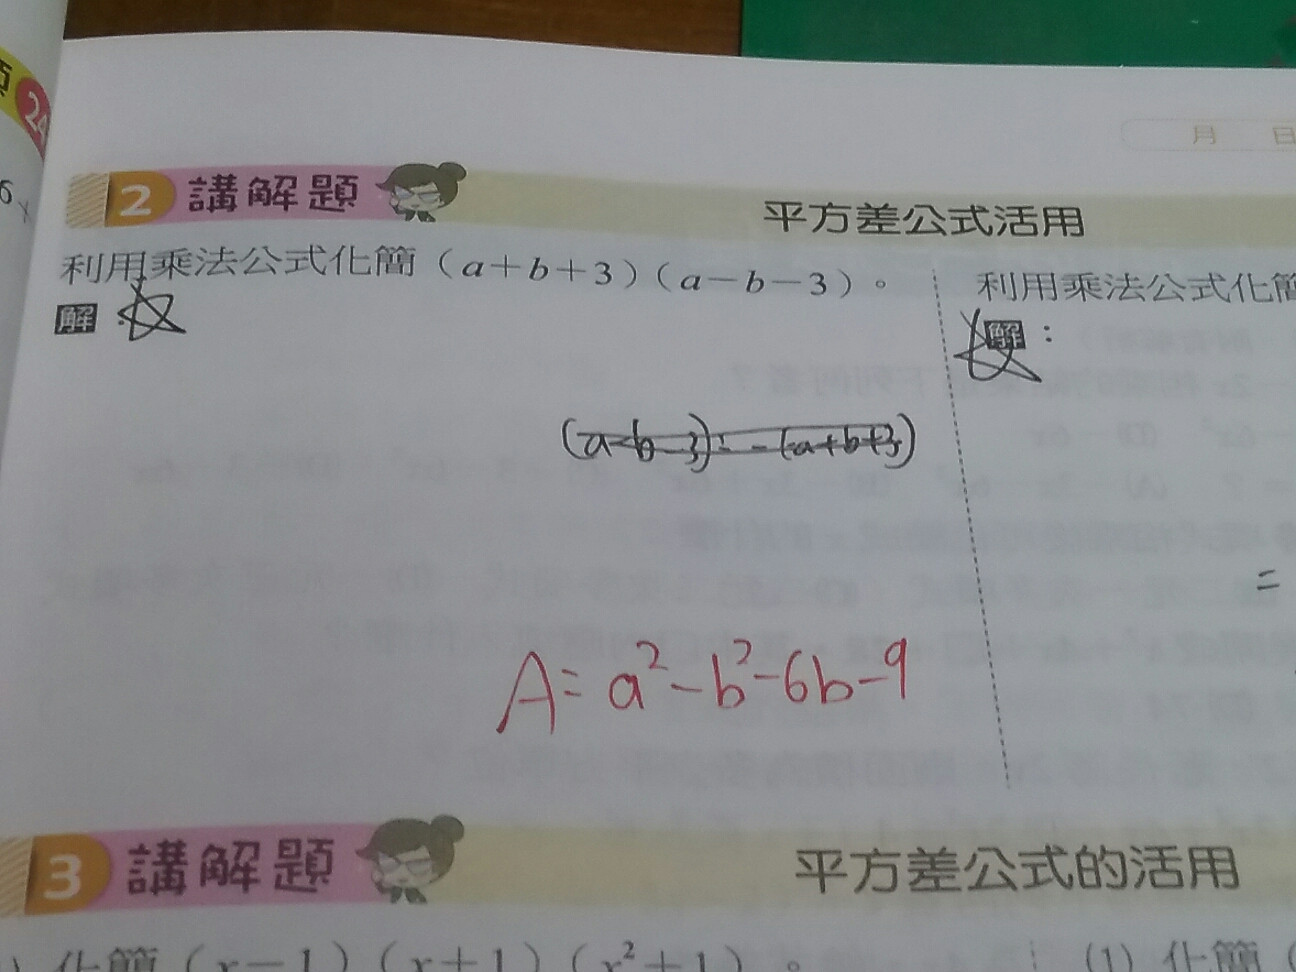 月 日
2 講解題
平方差公式活用
利用乘法公式化簡（a＋b＋3）（a－b－3）。
解：
利用乘法公式化簡
解：
(a-b-3)=-(a+b+3)
=
A= a²-b²-6b-9
3 講解題
平方差公式的活用
化簡（x－1）（x＋1）（x²＋1）。
(1) 化簡（